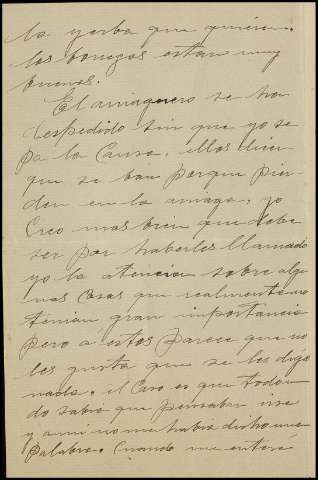 la yerba que quieran.
los borregos estan muy
buenos.
El amaguero se ha
despedido sin que yo se
pa la Causa. ellos dicen
que se ban porque pier
den en la amaga, yo
Creo mas bien que debe
ser por haberles llamado
yo la atencion sobre algu
nas Cosas que realmente no
tenian gran importancia
pero a estos parece que no
les gusta que se les diga
nada. el Caso es que todo mun
do sabia que pensaban irse
y a mi no me habia dicho una
palabra. Cuando me enteré